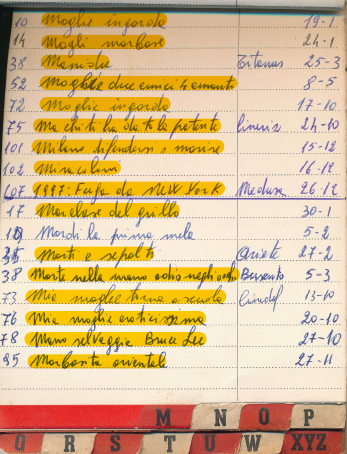 10 Moglie ingorda 19-1
14 Mogli morbose 24-1
38 Titanus 25-3
52 Moglie due amici 4 amanti 8-5
72 Moglie ingorda 17-10
75 Ma chi ti ha dato la patente Cineriz 24-10
101 Milano difendersi o morire 15-12
102 Miracoloni 16-12
107 1997: Fuga da New York Medusa 26-12
17 Marchese del grillo 30-1
19 Mordi la prima mela 5-2
35 Morti e sepolti Ariete 27-2
38 Morte nella mano odio negli occhi 5-3
73 Mia moglie torna a scuola 13-10
76 Mia moglie eroticissima 20-10
78 Mano selvaggia Bruce Lee 27-10
95 Morbosità orientale 27-11
M N O P
Q R S T U W XYZ